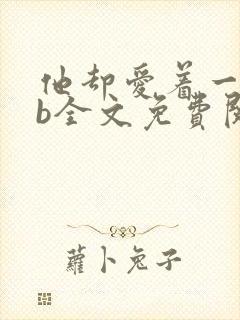 他却愛着一
b全文免費閱
蘿卜兔子